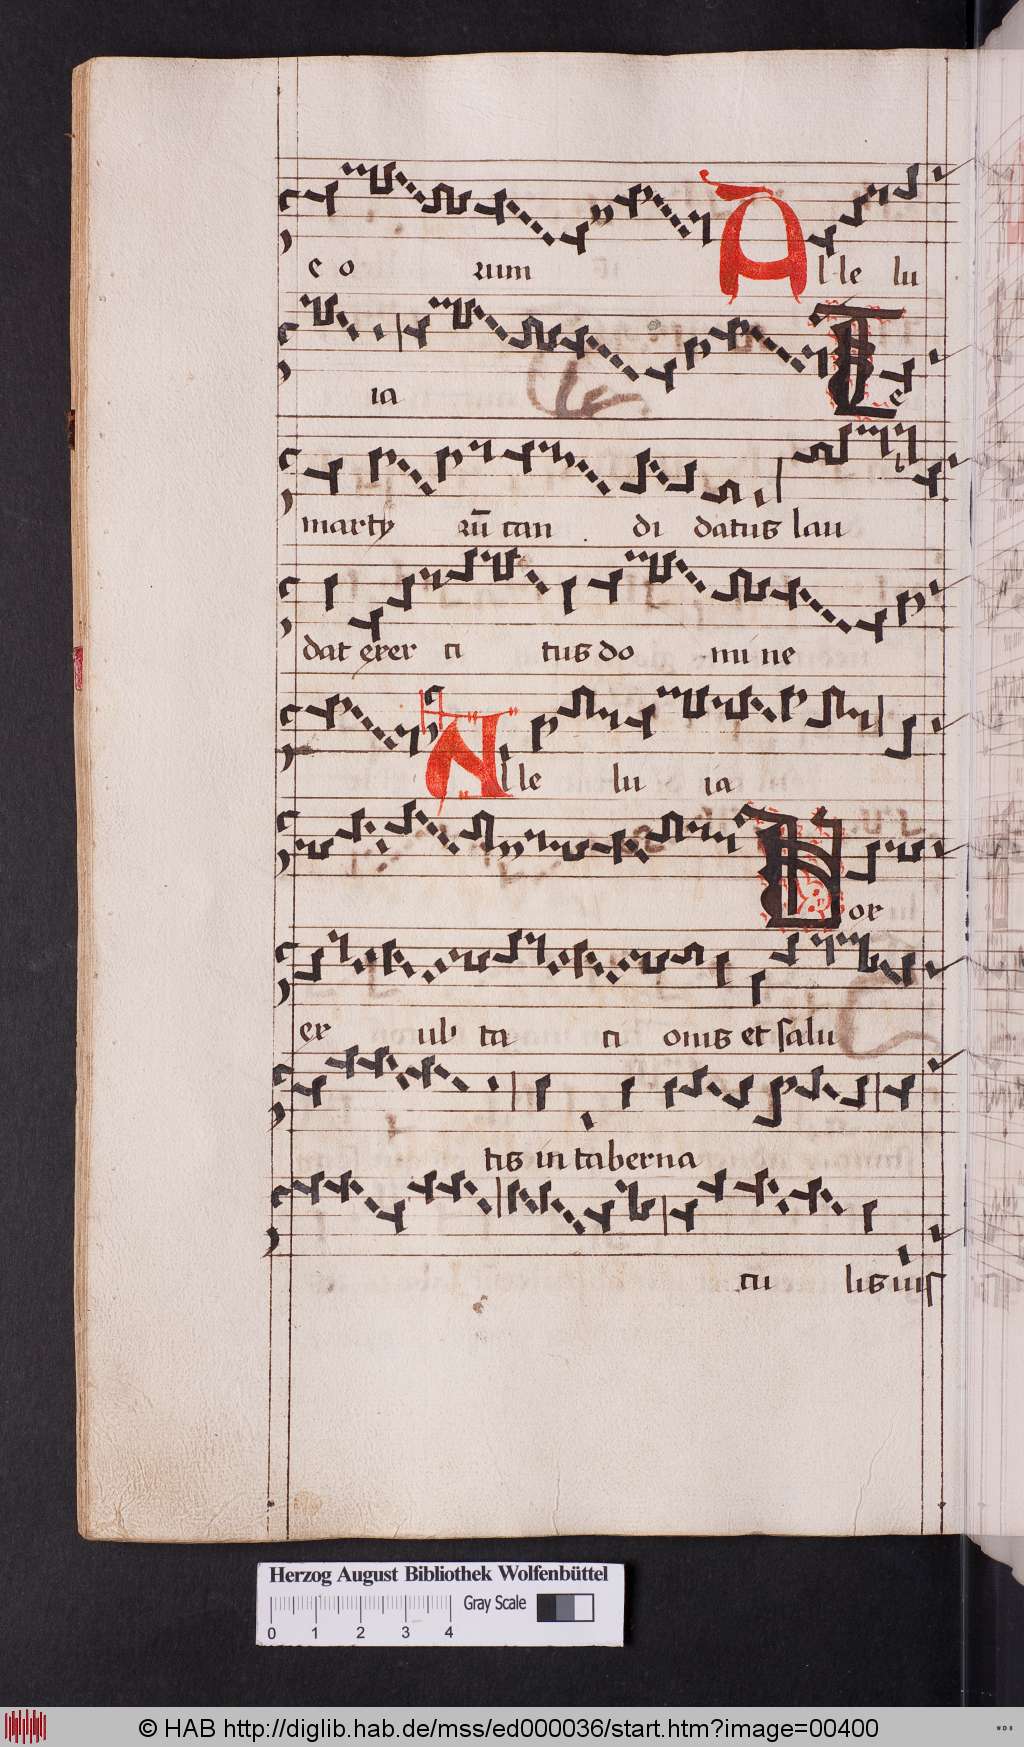 e o rum Alle lu
ia Te
marty rū can di datus lau
dat exer ci tus do mi ne
Alle lu ia
Vox
ex ul ta ci onis et salu
tis in taberna
cu lis ius
Herzog August Bibliothek Wolfenbüttel
Gray Scale
0 1 2 3 4
© HAB http://diglib.hab.de/mss/ed000036/start.htm?image=00400